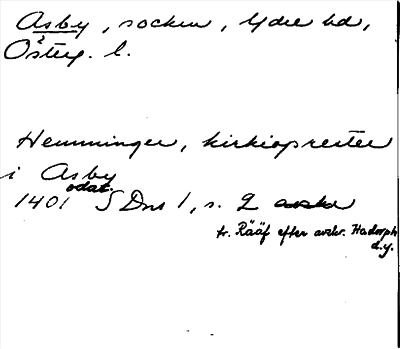 Asby, socken, Ydre hd,
Österg. l.
Hemminger, kirkioprester
i Asby
odat.
1401 SDns 1, s. 2 avskr
tr. Rääf efter avskr. Hadorph
d.y.